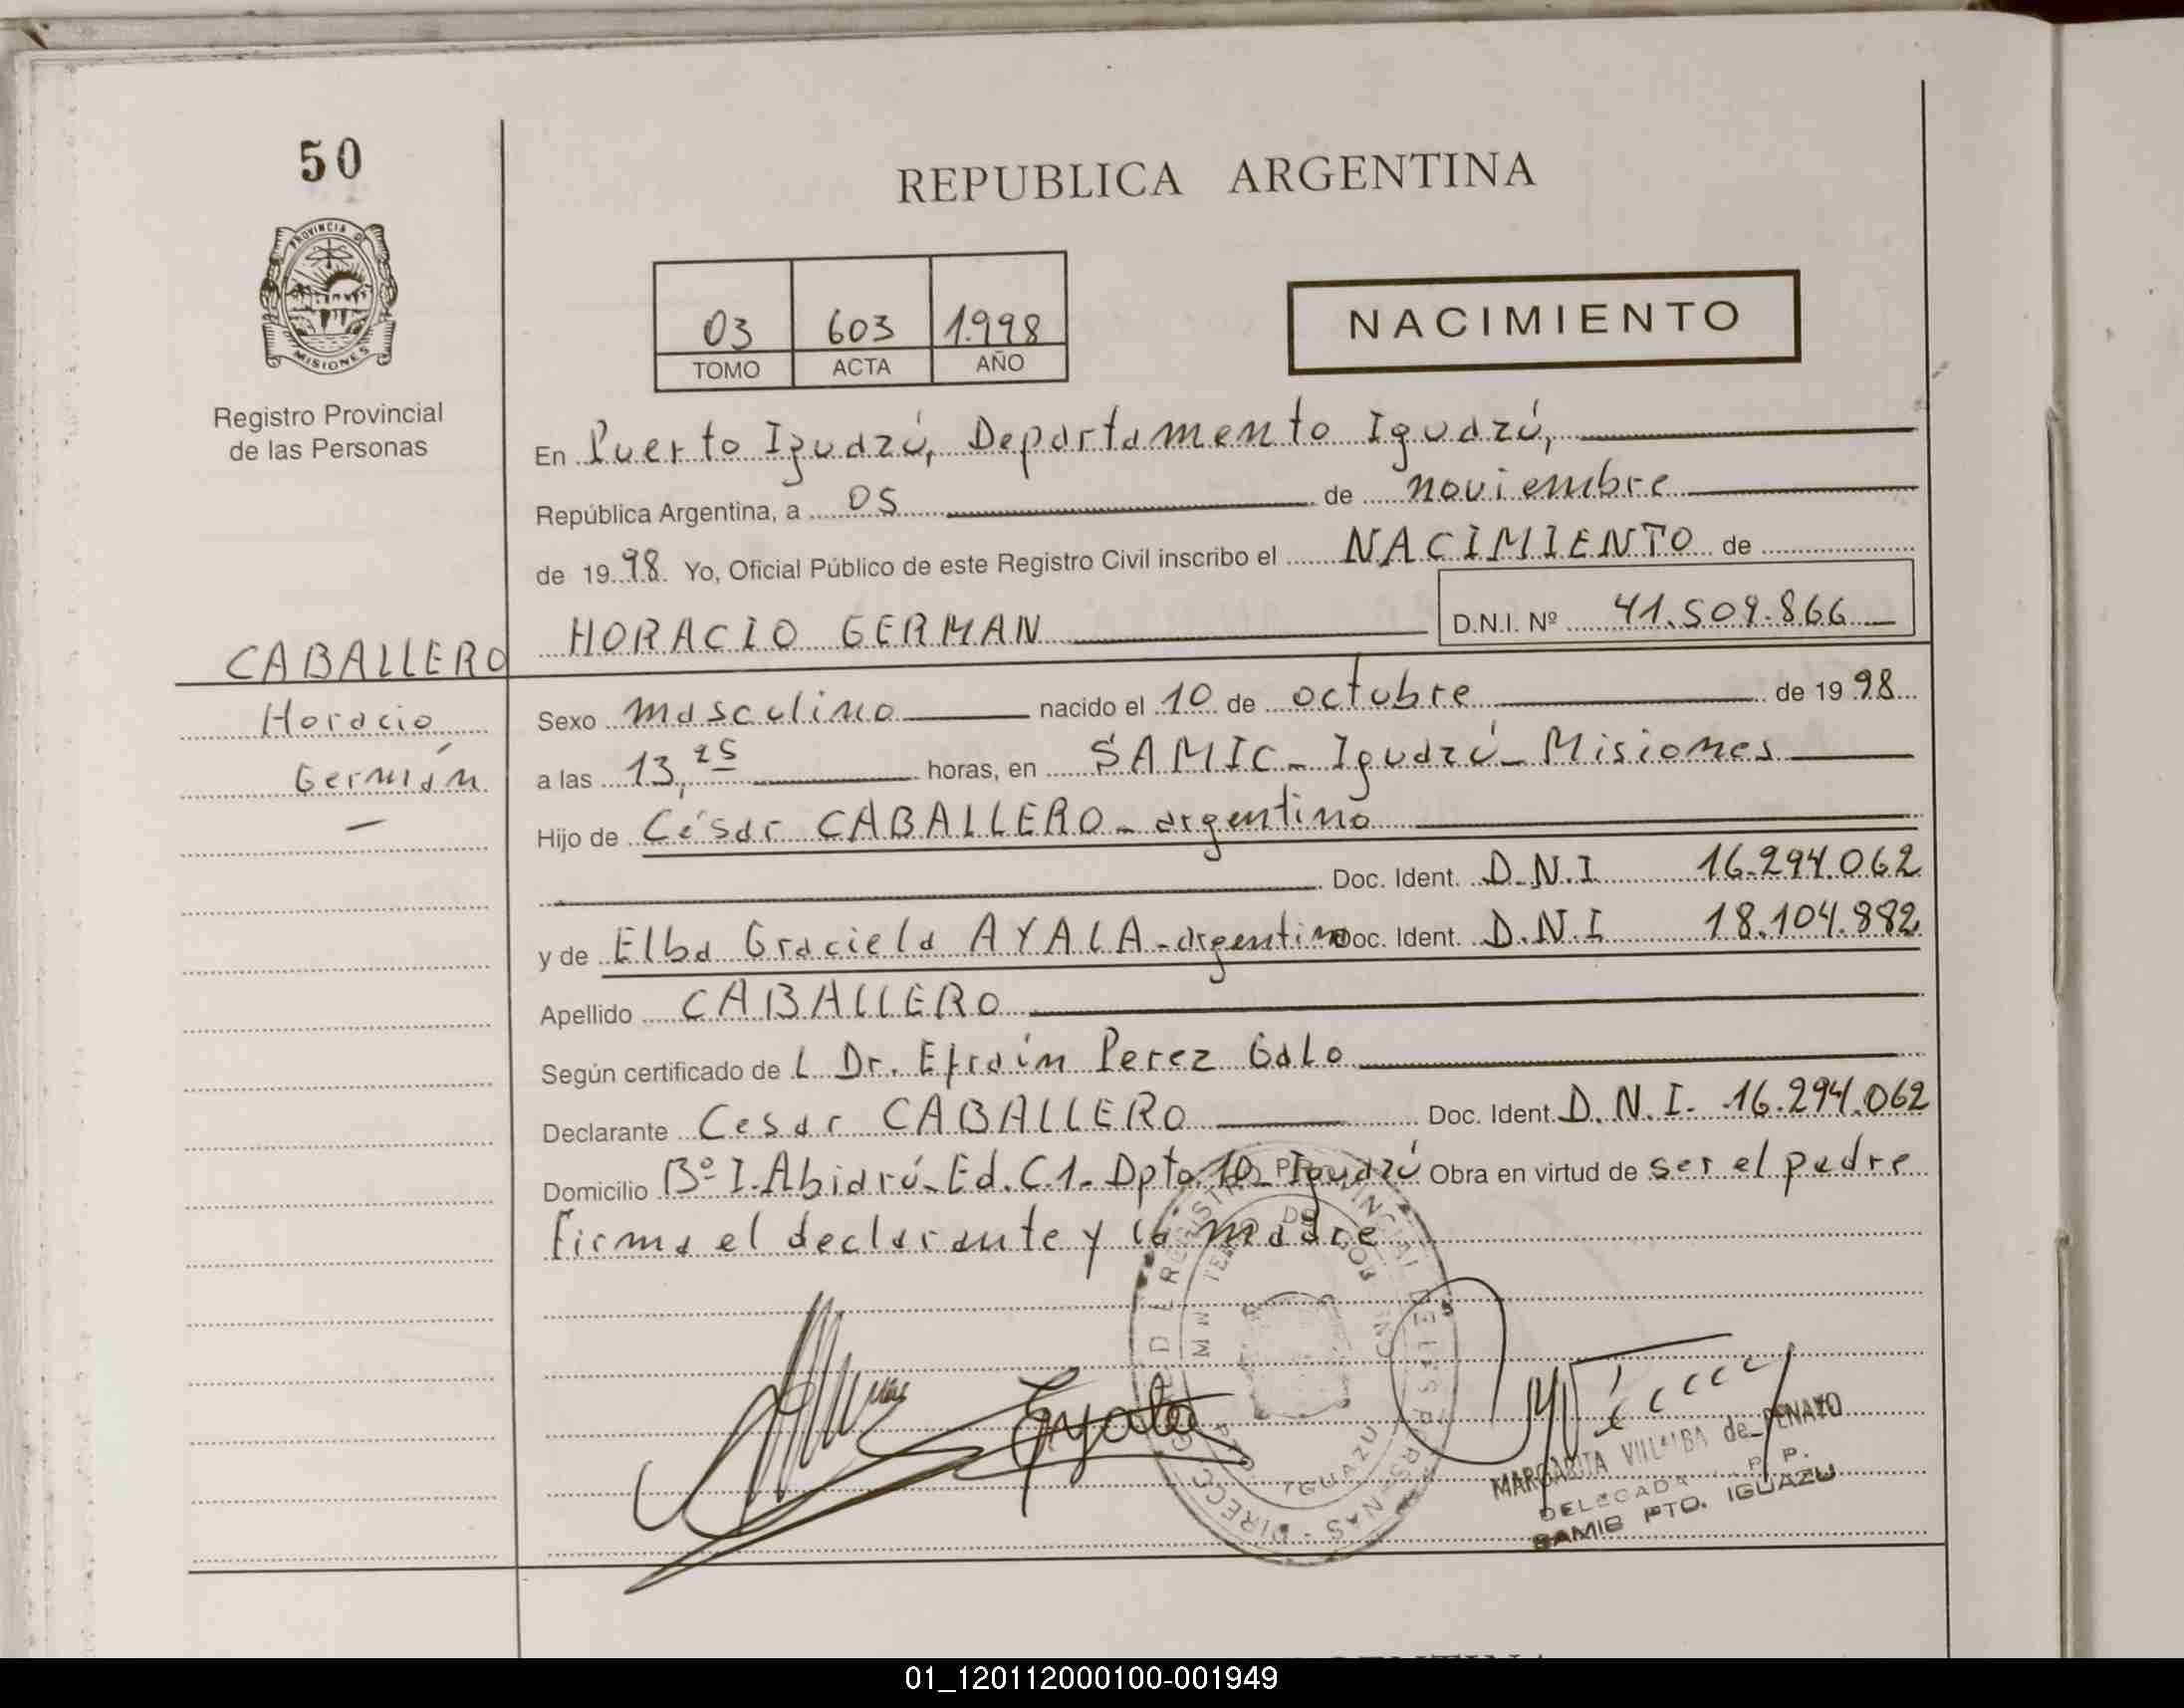 50
REPUBLICA ARGENTINA
PROVINCIA DE MISIONES
03 603 1.998
TOMO ACTA AÑO
NACIMIENTO
Registro Provincial
de las Personas
En Puerto Iguazú, Departamento Iguazú,
República Argentina, a 05 de noviembre
de 1998. Yo, Oficial Público de este Registro Civil inscribo el NACIMIENTO de
HORACIO GERMAN D.N.I. Nº 41.509.866
CABALLERO
Horacio
Germán
Sexo masculino nacido el 10 de octubre de 1998
a las 13,25 horas, en SAMIC - Iguazú - Misiones
Hijo de César CABALLERO - argentino
Doc. Ident. D.N.I 16.294.062
y de Elba Graciela AYALA - argentina Doc. Ident. D.N.I 18.104.882
Apellido CABALLERO
Según certificado de L Dr. Efraín Perez Galo
Declarante Cesar CABALLERO Doc. Ident. D.N.I. 16.294.062
Domicilio Bº I. Abidrú - Ed. C.1 - Dpto 10 - Iguazú Obra en virtud de ser el padre
Firma el declarante y la madre
IGUAZU
MARGARITA VILLALBA de PENAYO
DELEGADA P. P.
SAMIC PTO. IGUAZU
01_120112000100-001949